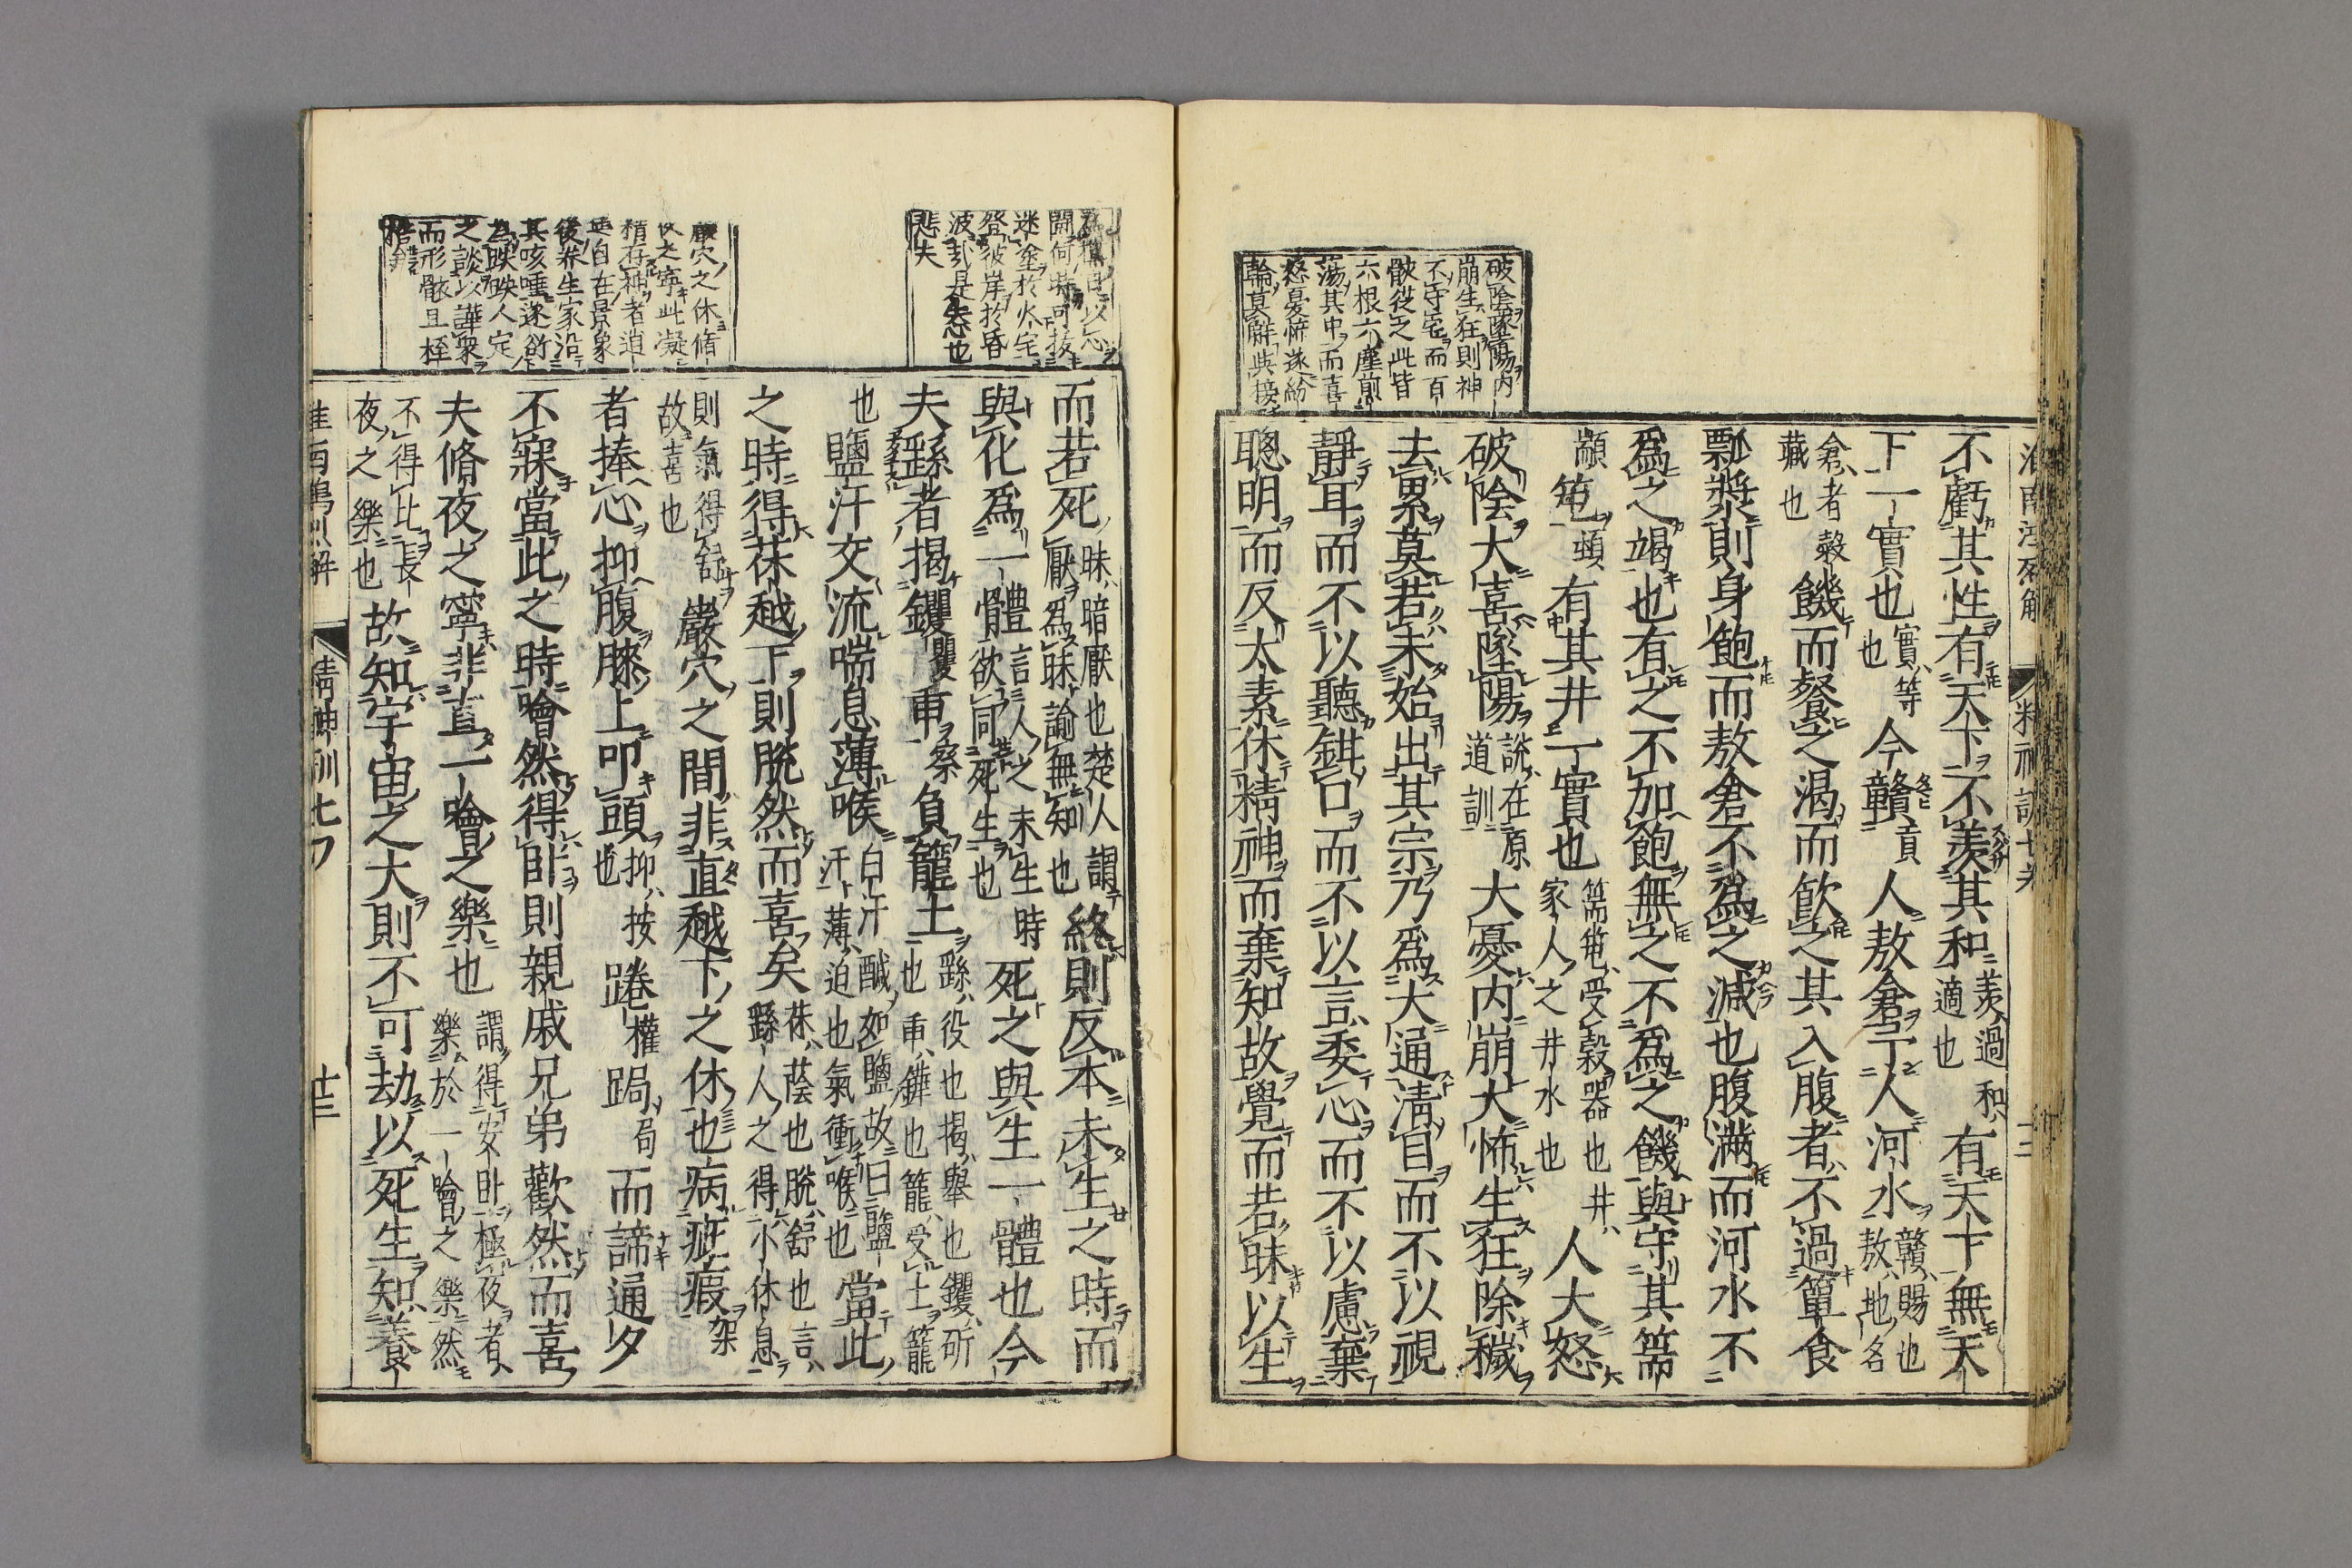 破陰墜陽内
崩生狂則神
不守宅而百
骸從之此皆
六根六塵煎
蕩其中而喜
怒憂怖遂紛
輪莫解與接
不虧其性有天下不羨其和羨過和適也有天下無天
下一實也實等也今贛貢人敖倉予人河水贛賜也敖地名
倉者糓藏也饑而餐之渴而飮之其入腹者不過簞食
瓢漿則身飽而敖倉不爲之減也腹滿而河水不
爲之竭也有之不加飽無之不爲之饑與守其篅
顓𥫱頓有其井一實也篅𥫱受榖器也井家人之井水也人大怒
破陰大喜墜陽説在原道訓大憂内崩大怖生狂除穢
去累莫若未始出其宗乃爲大通清目而不以視
靜耳而不以聽鉗口而不以言委心而不以慮棄
聰明而反太素休精神而棄知故覺而若昧以生
開何時可抜
迷塗於火宅
登彼岸於昏
波訃是失也
悲夫
巖穴之休脩
夜之寧此凝
精存神者逍
遥自在景象
後養生家沿
其咳唾遂創
為映映人定
之談以譁衆
而形骸且桎
而若死昧暗厭也楚人謂厭爲昧諭無知也終則反本未生之時而
與化爲一體言人之未生時欲同死生也死之與生一體也今
夫繇者揭钁瞿臿察負籠土繇役也揭舉也钁斫也臿鏵也籠受土籠
也鹽汗交流喘息薄喉白汗醎如鹽故曰鹽汗薄迫也氣衝喉也當此
之時得茠越下則脱然而喜矣茠蔭也脱舒也言繇人之得小休息
則氣得舒故喜也巖穴之間非直越下之休也病疵瘕架
者捧心抑腹膝上叩頭抑按也踡權跼局而諦通夕
不寐當此之時噲然得臥則親戚兄弟歡然而喜
夫脩夜之寧非直一噲之樂也謂得安臥極夜者樂於一噲之樂然
不得比長夜之樂也故知宇宙之大則不可劫以死生知養
精神訓七ノ
十三